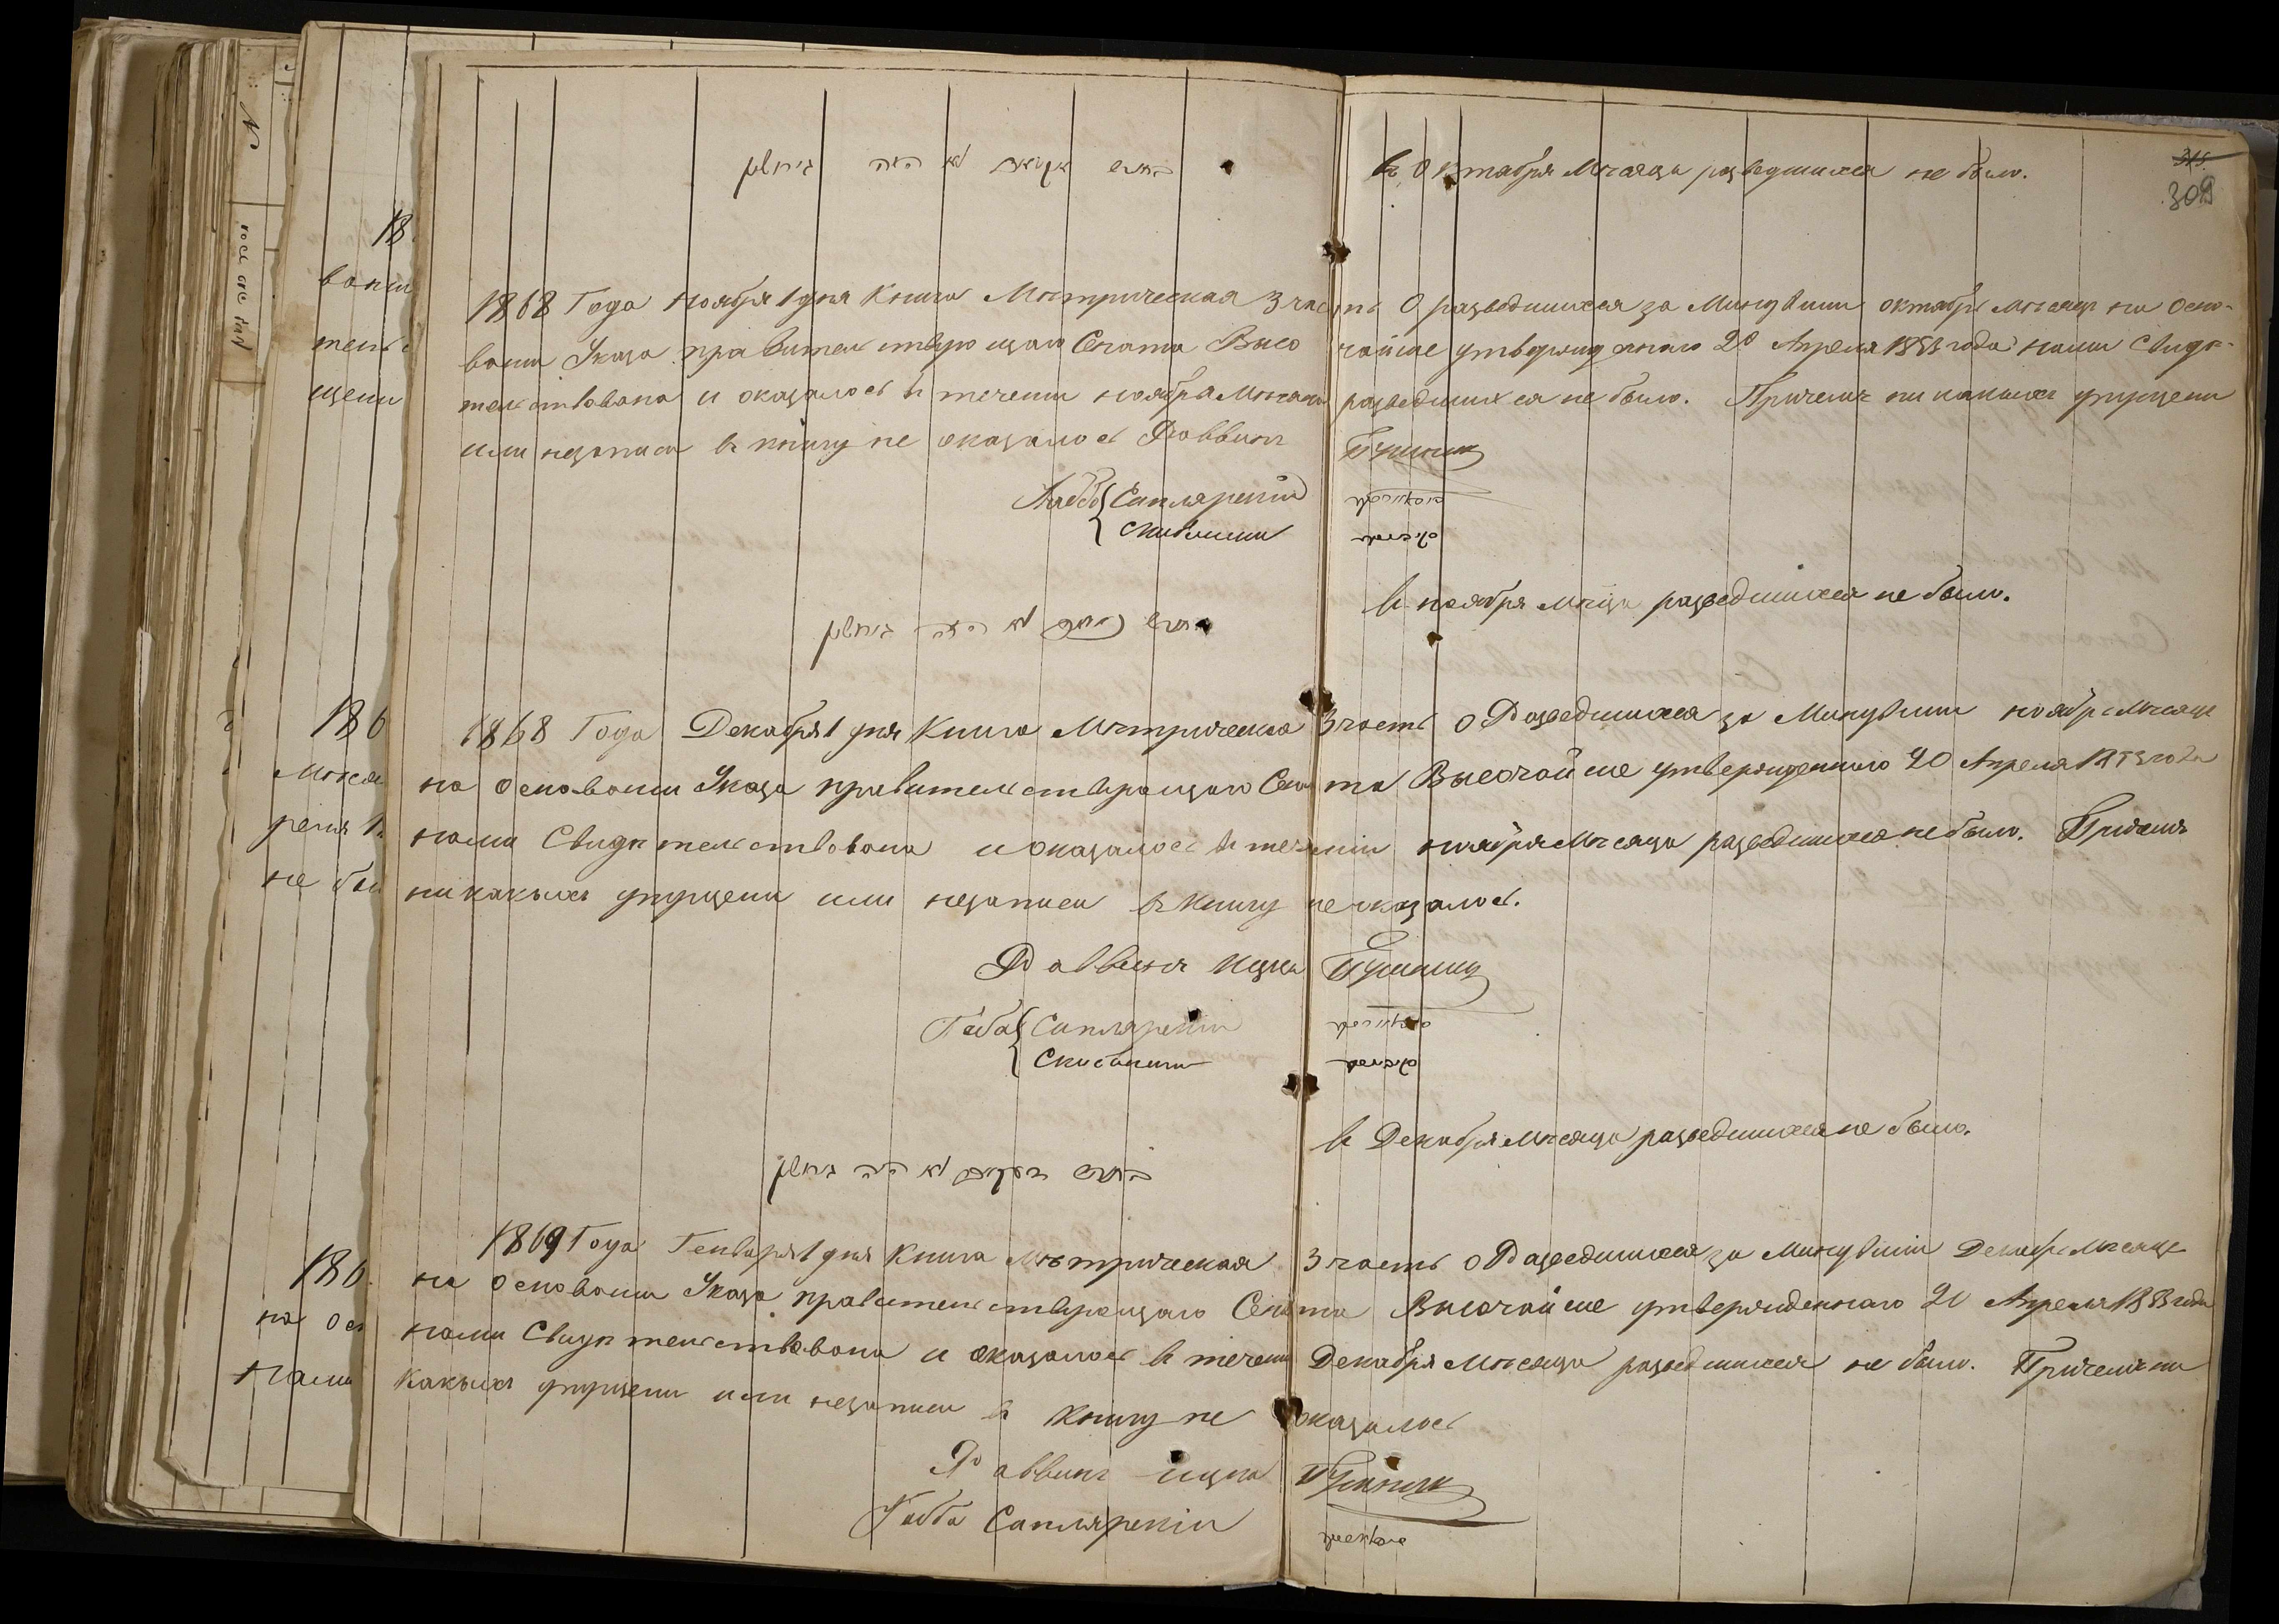 В Октября Месяца разведшихся не было.
315.
309
1868 Года Ноября 1 дня Книга Метрическая 3 часть О разведшихся за Минувши октябрь Месяцъ на Осно-
вани Указа правительствующаго Сената Высочайше утвержденнаго 20 Апреля 1853 года нами Свидѣ-
тельствована и оказалось в течени ноября Месяца разведшихся не было. Причемъ никакихъ упущени
или незаписи в книгу не оказалось Раввинъ
Габо Саплярский
Скибински
в ноября мѣсца разведшихся не было.
חודש נאיאבער לא היה גירושין
1868 Года Декабря 1 дня Книга Метрическа 3 часть о Разведшихся за Минувши ноябрь Месяцъ
на Основани Указа правительствующаго Сената Высочайше утвержденнаго 20 Апреля 1853 года
нами Свидѣтельствована и оказалось в течении ноября Месяца разведшихся не было. Причемъ
никакихъ упущени или незаписи в Книгу не оказалось.
Раввинъ Ицка
Габа Саплярски
Скибински
в Декабря Месяца разведшихся не было.
חודש דעקאבער לא היה גירושין
1869 Года Генваря 1 дня Книга Метрическая 3 часть о Разведшихся за Минувшии Декабрь Месяцъ
на Основани Указа правительствующаго Сената Высочайше утвержденнаго 20 Апреля 1853 года
нами Свидѣтельствована и оказалось в течени Декабря Месяца разведшихся не было. Причемъ ни
какихъ упущени или незаписи в Книгу не оказалось
Раввинъ Ицка
Габба Саплярскии